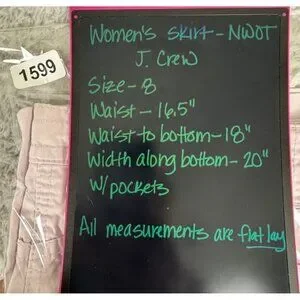 Women's Skirt - NWOT
J. Crew
1599
Size - 8
Waist - 16.5"
Waist to bottom - 18"
Width along bottom - 20"
W/pockets
All measurements are flat lay